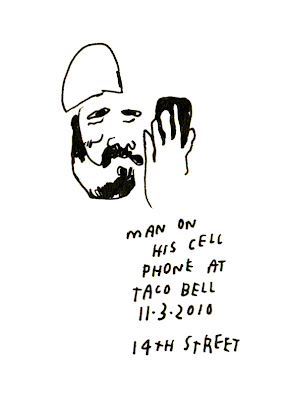 MAN ON
HIS CELL
PHONE AT
TACO BELL
11.3.2010
14TH STREET